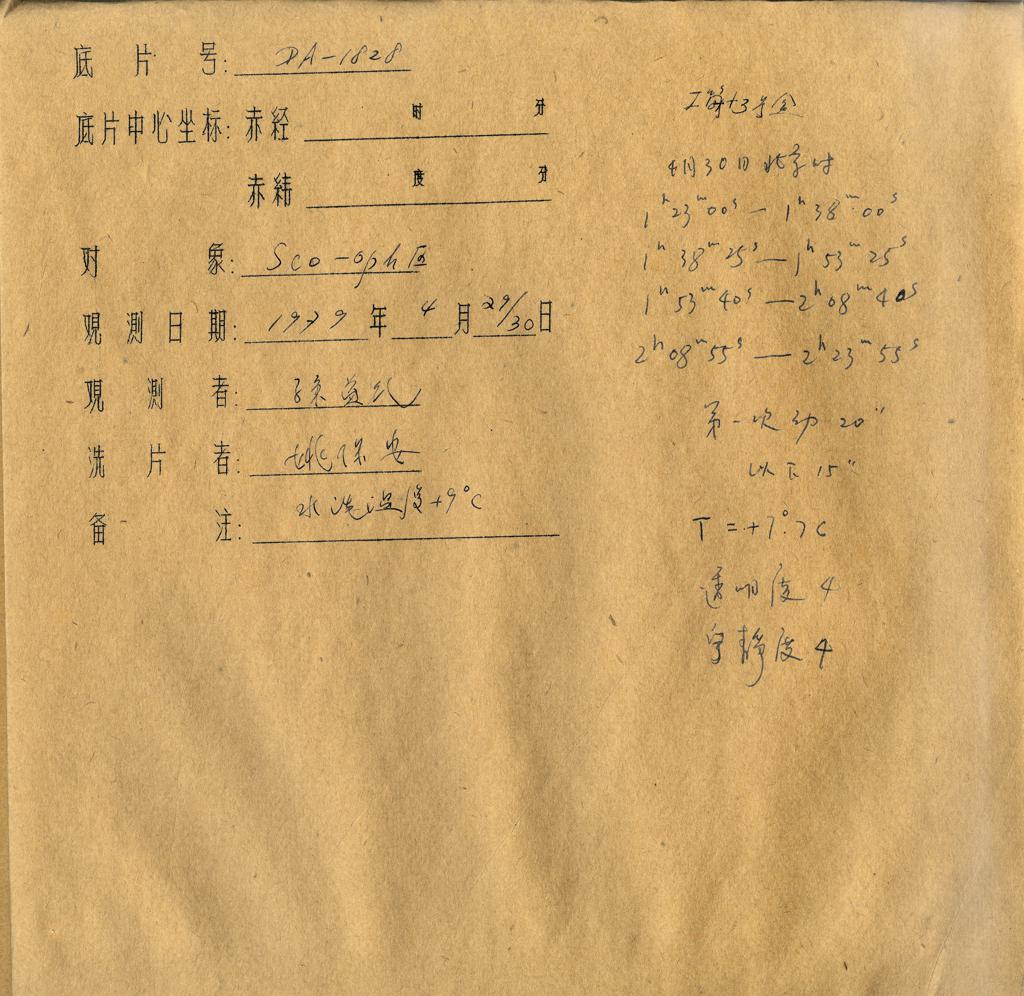 底片号: DA-1828
底片中心坐标: 赤经 时 分
赤纬 度 分
对象: Sco-oph
观测日期: 1979年4月29/30日
观测者:
洗片者: 姚保安
备注: 水洗温度+9°C
4月30日北京时
1ʰ23ᵐ00ˢ — 1ʰ38ᵐ00ˢ
1ʰ38ᵐ25ˢ — 1ʰ53ᵐ25ˢ
1ʰ53ᵐ40ˢ — 2ʰ08ᵐ40ˢ
2ʰ08ᵐ55ˢ — 2ʰ23ᵐ55ˢ
第一次动20"
以下15"
T=+7°.7C
透明度4
宁静度4